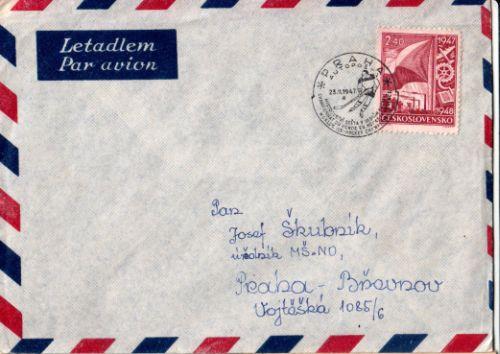 Letadlem
Par avion
2.40
1947
PRAHA
23.II.1947
1948
ČESKOSLOVENSKO
Pan
Josef Škulovik,
úředník MŠ-NO,
Praha - Břevnov
Vojtěšká 1085/6